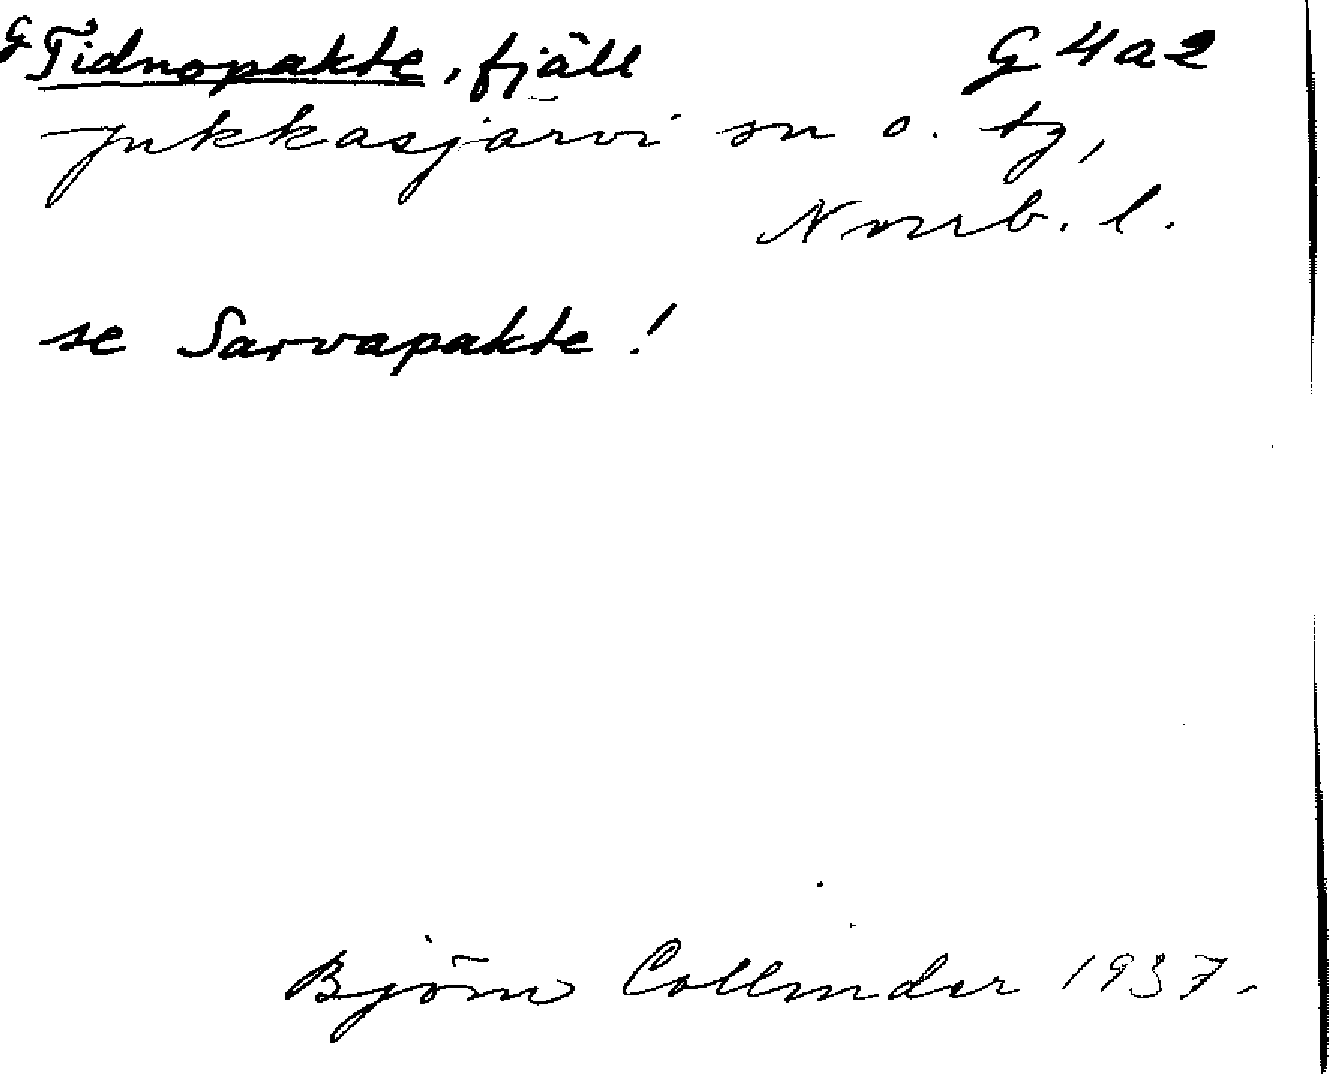 G Tidnopakte, fjäll G 4 a 2
Jukkasjärvi sn o. tg,
Norrb. l.
se Sarvapakte!
Björn Collinder 1937.